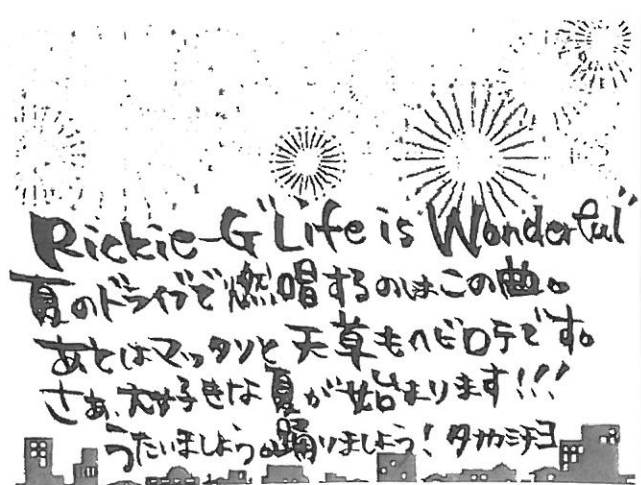 Rickie-G"Life is Wonderful"
夏のドライブで燃唱するのはこの曲。
あとはマッタソと天草もヘビロテです。
さあ、大好きな夏が始まります!!!
うたいましょう。踊りましょう! タナカミチヨ